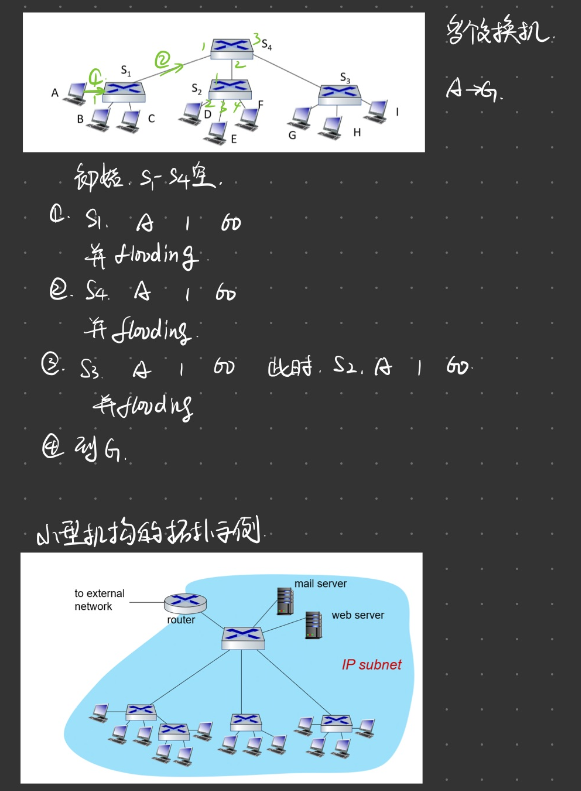 S4
S1
S2
S3
A
B
C
D
E
F
G
H
I
① 1
②
1 2 3
1 2 3 4
多个交换机.
A→G.
初始. S1-S4空.
①. S1. A 1 60
并flooding.
②. S4. A 1 60
并flooding.
③. S3. A 1 60 此时. S2. A 1 60.
并flooding
④ 到G.
小型机构的拓扑示例.
to external
network
router
mail server
web server
IP subnet